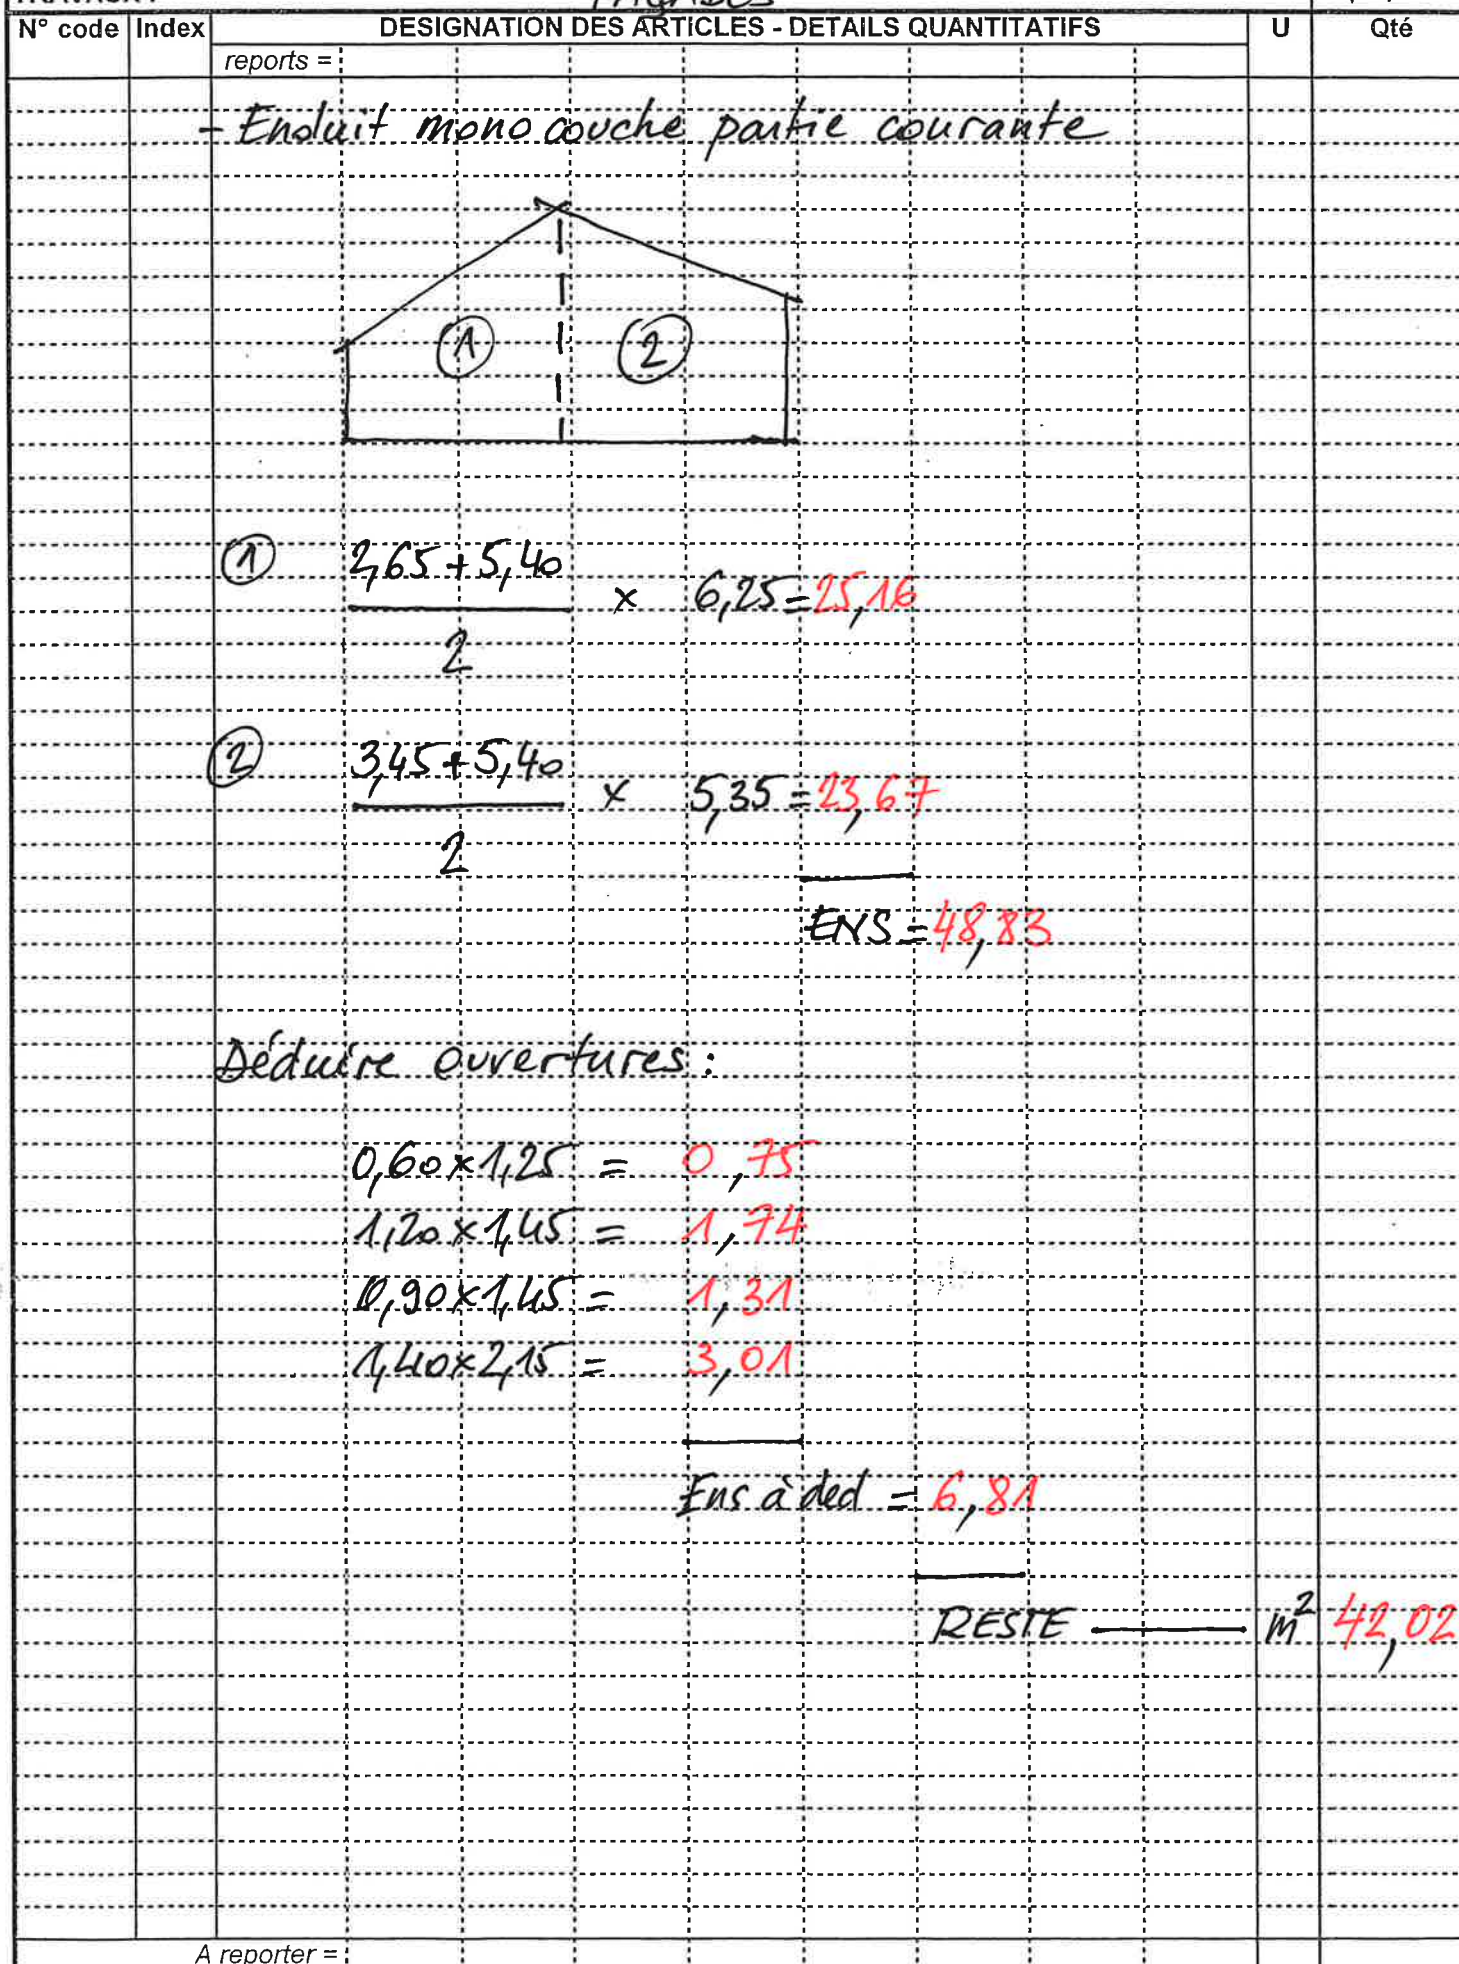 N° code Index DESIGNATION DES ARTICLES - DETAILS QUANTITATIFS U Qté
reports =
- Enduit mono couche partie courante
1 2
1 2,65 + 5,40
x 6,25 = 25,16
2
2 3,45 + 5,40
x 5,35 = 23,67
2
ENS = 48,83
Déduire ouvertures :
0,60 x 1,25 = 0,75
1,20 x 1,45 = 1,74
0,90 x 1,45 = 1,31
1,40 x 2,15 = 3,01
Ens à ded = 6,81
RESTE m² 42,02
A reporter =